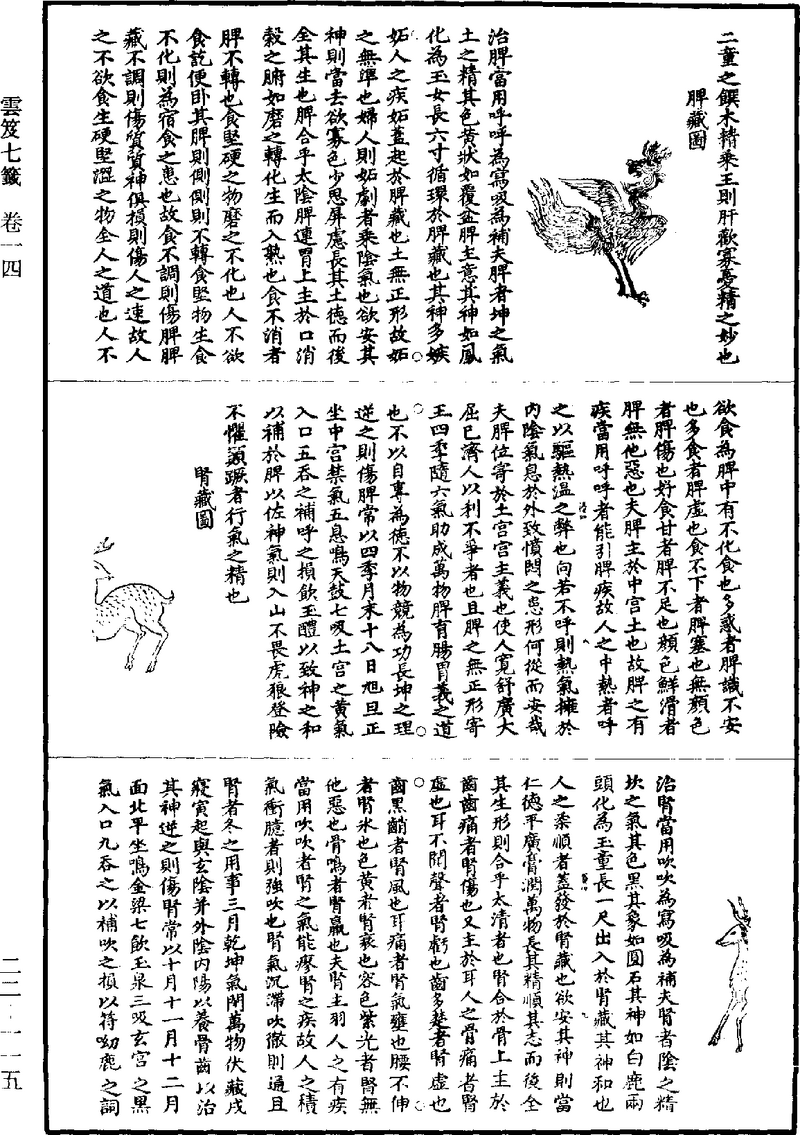 雲笈七籤 卷一四
二二·一一五
二童之饌木精乘王則肝歡寡憂精之妙也
脾藏圖
治脾當用呼呼為寫吸為補夫脾者坤之氣
土之精其色黄狀如覆盆脾主意其神如鳳
化為玉女長六寸循環於脾藏也其神多嫉
妬人之疾妬蓋起於脾藏也土無正形故妬
之無準也婦人則妬劇者乘陰氣也欲安其
神則當去欲寡色少思屏慮長其土徳而後
全其生也脾合乎太陰脾連胃上主於口消
榖之腑如磨之轉化生而入熟也食不消者
脾不轉也食堅硬之物磨之不化也人不欲
食訖便卧其脾則側側則不轉食堅物生食
不化則為宿食之患也故食不調則傷脾脾
藏不調則傷質質神俱損則傷人之速故人
之不欲食生硬堅澀之物全人之道也人不
欲食為脾中有不化食也多惑者脾識不安
也多食者脾虚也食不下者脾塞也無顔色
者脾傷也好食甘者脾不足也顔色鮮滑者
脾無他惡也夫脾主於中宫土也故脾之有
疾當用呼呼者能引脾疾故人之中熱者呼
之以驅熱温之弊也向若不呼則熱氣擁於
内陰氣息於外致憤悶之患形何從而安哉
夫脾位寄於土宫宫主義也使人寛舒廣大
屈已濟人以利不爭者也且脾之無正形寄
王四季隨六氣助成萬物脾育腸胃義之道
也不以自專為徳不以物競為功長坤之理
逆之則傷脾常以四季月末十八日旭旦正
坐中宫禁氣五息鳴天鼓七吸土宫之黄氣
入口五吞之補呼之損飲玉醴以致神之和
以補於脾以佐神氣則入山不畏虎狼登險
不懼顛蹶者行氣之精也
腎藏圖
治腎當用吹吹為寫吸為補夫腎者陰之精
坎之氣其色黑其象如圓石其神如白鹿兩
頭化為玉童長一尺出入於腎藏其神和也
人之柔順者蓋發於腎藏也欲安其神則當
仁徳平廣膏潤萬物長其精順其志而後全
其生形則合乎太清者也腎合於骨上主於
齒齒痛者腎傷也又主於耳人之骨痛者腎
虚也耳不聞聲者腎虧也齒多楚者腎虚也
齒黑齰者腎風也耳痛者腎氣壅也腰不伸
者腎氷也色黄者腎衰也容色紫光者腎無
他惡也骨鳴者腎羸也夫腎主羽人之有疾
當用吹吹者腎之氣能療腎之疾故人之積
氣衝臆者則強吹也腎氣沉滯吹徹則通且
腎者冬之用事三月乾坤氣閉萬物伏藏戌
寢寅起與玄陰并外陰内陽以養骨齒以治
其神逆之則傷腎常以十月十一月十二月
面北平坐鳴金梁七飲玉泉三吸玄宫之黑
氣入口九吞之以補吹之損以符呦鹿之詞